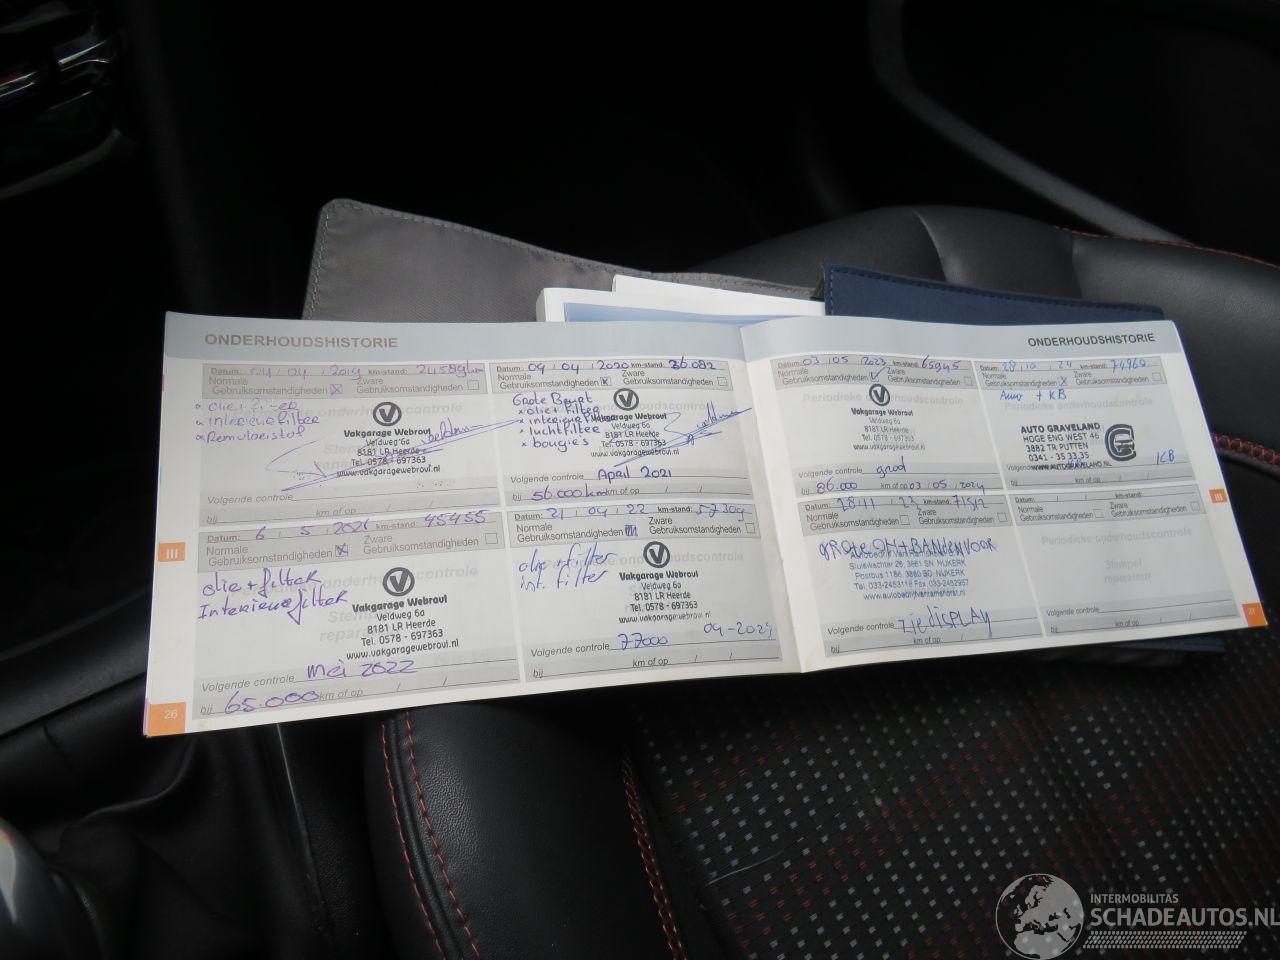 ONDERHOUDSHISTORIE
Datum: 04 / 04 / 2019 km-stand: 24589km
Normale Gebruiksomstandigheden Zware Gebruiksomstandigheden
* olie + filter
* interieurfilter
* Remvloeistof
Vakgarage Webrovi
Veldweg 6a
8181 LR Heerde
Tel. 0578 - 697363
www.vakgaragewebrovi.nl
Volgende controle
bij km of op / /
Datum: 6 / 5 / 2021 km-stand: 45455
Normale Gebruiksomstandigheden Zware Gebruiksomstandigheden
olie + filter
Interieurfilter
Vakgarage Webrovi
Veldweg 6a
8181 LR Heerde
Tel. 0578 - 697363
www.vakgaragewebrovi.nl
Volgende controle mei 2022
bij 65.000 km of op / /
III
26
Datum: 04 / 04 / 2020 km-stand: 36082
Normale Gebruiksomstandigheden Zware Gebruiksomstandigheden
Grote Beurt
* olie + filter
* interieurfilter
* luchtfilter
* bougies
Vakgarage Webrovi
Veldweg 6a
8181 LR Heerde
Tel. 0578 - 697363
www.vakgaragewebrovi.nl
Volgende controle April 2021
bij 56.000 km km of op / /
Datum: 21 / 04 / 22 km-stand: 57309
Normale Gebruiksomstandigheden Zware Gebruiksomstandigheden
olie + filter
int. filter
Vakgarage Webrovi
Veldweg 6a
8181 LR Heerde
Tel. 0578 - 697363
www.vakgaragewebrovi.nl
Volgende controle 77000 04-2024
bij km of op / /
ONDERHOUDSHISTORIE
Datum: 03 / 05 / 2023 km-stand: 65945
Normale Gebruiksomstandigheden Zware Gebruiksomstandigheden
Periodieke
Vakgarage Webrovi
Veldweg 6a
8181 LR Heerde
Tel. 0578 - 697363
www.vakgaragewebrovi.nl
Volgende controle groot
bij 86.000 km of op 03 / 05 / 2024
Datum: 28 / 11 / 23 km-stand: 71512
Normale Gebruiksomstandigheden Zware Gebruiksomstandigheden
GROTE OH + BANDEN VOOR
Autobedrijf Van Ramshorst
Sluiswachter 26, 3861 SN NIJKERK
Postbus 1186, 3860 BD NIJKERK
Tel: 033-2453118 Fax 033-2452957
www.autobedrijfvanramshorst.nl
Volgende controle zie display
bij km of op / /
Datum: 28 / 10 / 24 km-stand: 74960
Normale Gebruiksomstandigheden Zware Gebruiksomstandigheden
+ KB
Periodieke
AUTO GRAVELAND
HOGE ENG WEST 46
3882 TR PUTTEN
0341 - 35 33 35
WWW.AUTOGRAVELAND.NL
Volgende
bij KB
Datum: / / km-stand:
Normale Gebruiksomstandigheden Zware Gebruiksomstandigheden
Periodieke onderhoudscontrole
Stempel reparateur
Volgende controle
bij km of op / /
III
27
INTERMOBILITAS
SCHADEAUTOS.NL